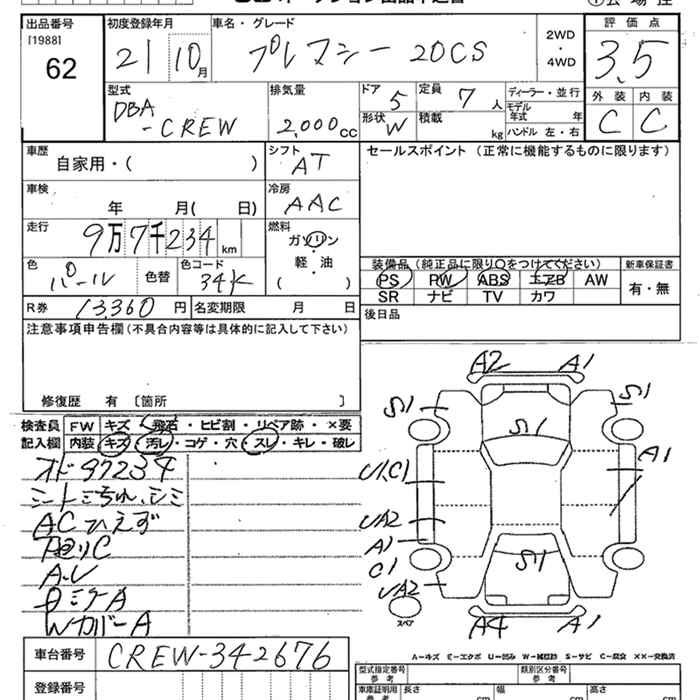 出品番号 初度登録年月 車名・グレード 評価点
[1988]
62
21 10月 プレマシー 20CS 2WD・4WD 3.5
外装 内装
C C
型式 排気量 ドア 定員 ディーラー・並行
DBA-CREW 2,000cc 5 7人 モデル年式 年
形状 W 積載 kg ハンドル 左・右
車歴 シフト セールスポイント (正常に機能するものに限ります)
自家用・( ) AT
車検 冷房
年 月( 日) AAC
走行 燃料
9万7千234km ガソリン
軽・油
( )
色 色替 色コード 装備品(純正品に限り○をつけてください) 新車保証書
パール 34K PS PW ABS エアB AW 有・無
SR ナビ TV カワ
R券 13,360円 名変期限 月 日 後日品
注意事項申告欄(不具合内容等は具体的に記入して下さい)
修復歴 有 [箇所 ]
検査員 FW キズ・飛石・ヒビ割・リペア跡・×要
記入欄 内装 キズ・汚レ・コゲ・穴・スレ・キレ・破レ
オド97234
AC ひえず
A.レ
WカバーA
A2 A1
S1 S1
S1
U1.C1 A1
UA2
A1
C1 S1
UA2
スペア
A4 A1
A-キズ E-エクボ U-凹み W-補修跡 S-サビ C-腐食 XX-交換済
車台番号 CREW-342676 型式指定番号 参考 類別区分番号 参考
登録番号 車庫証明用 参考 長さ cm 幅 cm 高さ cm